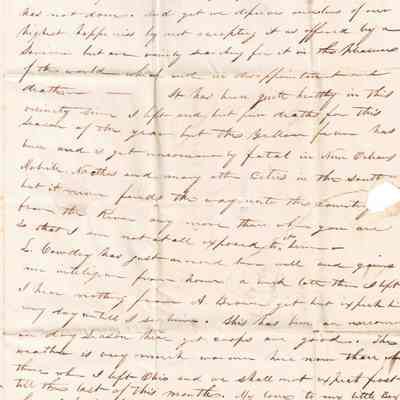 has not done. And yet we deprive ourselves of our
highest happiness by not accepting it as offered by a
Saviour but are vainly searching for it in the pleasures
of this world which end in disappointment and
death — It has been quite healthy in this
vicinity since I left and but few deaths for this
season of the year but the Yellow fever has
been and is yet uncommonly fatal in New Orleans
Mobile Natches and many other Cities in the South
but it never finds the way into the country
from the River any more than where you are
So that I am not at all exposed to it here
L. Cowdry has just arrived here well and gives
me intelligence from home a week later than I left
I hear nothing from A. Brown yet but expect him
any day until I see him. This has been an uncommon
dry season here yet crops are good. The
weather is very much warmer here now than
there when I left Ohio and we shall not expect frost
till the last of this month. My love to my little Boy